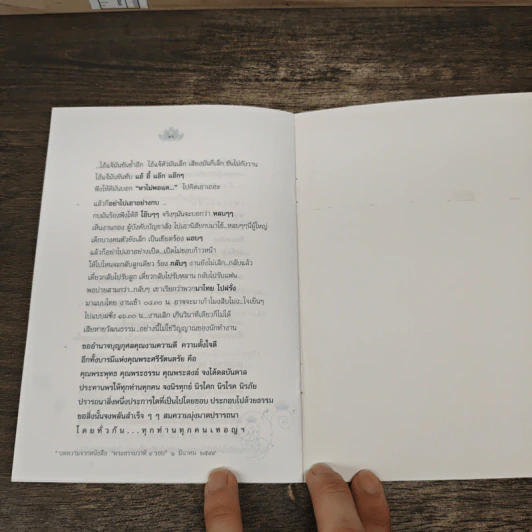 ...ไอ้แจ้มันขันซ้ำอีก ไอ้แจ้ตัวมันเล็ก เสียงมันก็เล็ก ขันไม่กังวาน
ไอ้แจ้มันขันทับ แอ้ อี้ แอ้ก แอ้กๆ
ฟังให้ดีมันบอก “หาไม่พอแดก...” ไปคิดเอาเถอะ
แล้วก็อย่าไปเอาอย่างกบ ..
กบมันร้องฟังให้ดี โอ๊บๆๆ จริงๆมันจะบอกว่า หลบๆๆ
เดินงานกอง ผู้บังคับบัญชาสั่ง ไปเอานิสัยกบมาใช้...หลบๆๆนี่ผู้ใหญ่
เด็กบางคนตัวยังเล็ก เป็นเขียดร้อง แอบๆ
แล้วก็อย่าไปเอาอย่างเป็ด...เป็ดไม่ชอบก้าวหน้า
ให้ไปไหนจะกลับลูกเดียว ร้อง กลับๆ งานยังไม่เลิก..กลับแล้ว
เดี๋ยวกลับไปรับลูก เดี๋ยวกลับไปรับหลาน กลับไปรับแฟน..
พอบ่ายสามกว่า..กลับๆ เขาเรียกว่าพวกมาไทย ไปฝรั่ง
มาแบบไทย งานเข้า ๐๘.๓๐ น. อาจจะมาเก้าโมงสิบโมง..ใจเย็นๆ
ไปแบบฝรั่ง ๑๖.๓๐ น...งานเลิก เกินวินาทีเดียวก็ไม่ได้
เสียหายวัฒนธรรม...อย่างนี้ไม่ใช่วิญญาณของนักทำงาน
ขออำนาจบุญกุศลคุณงามความดี ความตั้งใจดี
อีกทั้งบารมีแห่งคุณพระศรีรัตนตรัย คือ
คุณพระพุทธ คุณพระธรรม คุณพระสงฆ์ จงได้ดลบันดาล
ประทานพรให้ทุกท่านทุกคน จงนิรทุกข์ นิรโศก นิรโรค นิรภัย
ปรารถนาสิ่งหนึ่งประการใดที่เป็นไปโดยชอบ ประกอบไปด้วยธรรม
ขอสิ่งนั้นจงพลันสำเร็จ ๆ ๆ สมความมุ่งมาดปรารถนา
โดยทั่วกัน...ทุกท่านทุกคนเทอญฯ
* บทความจากหนังสือ “พระธรรมวาที ๔ รอบ” ๑ มีนาคม ๒๕๔๙